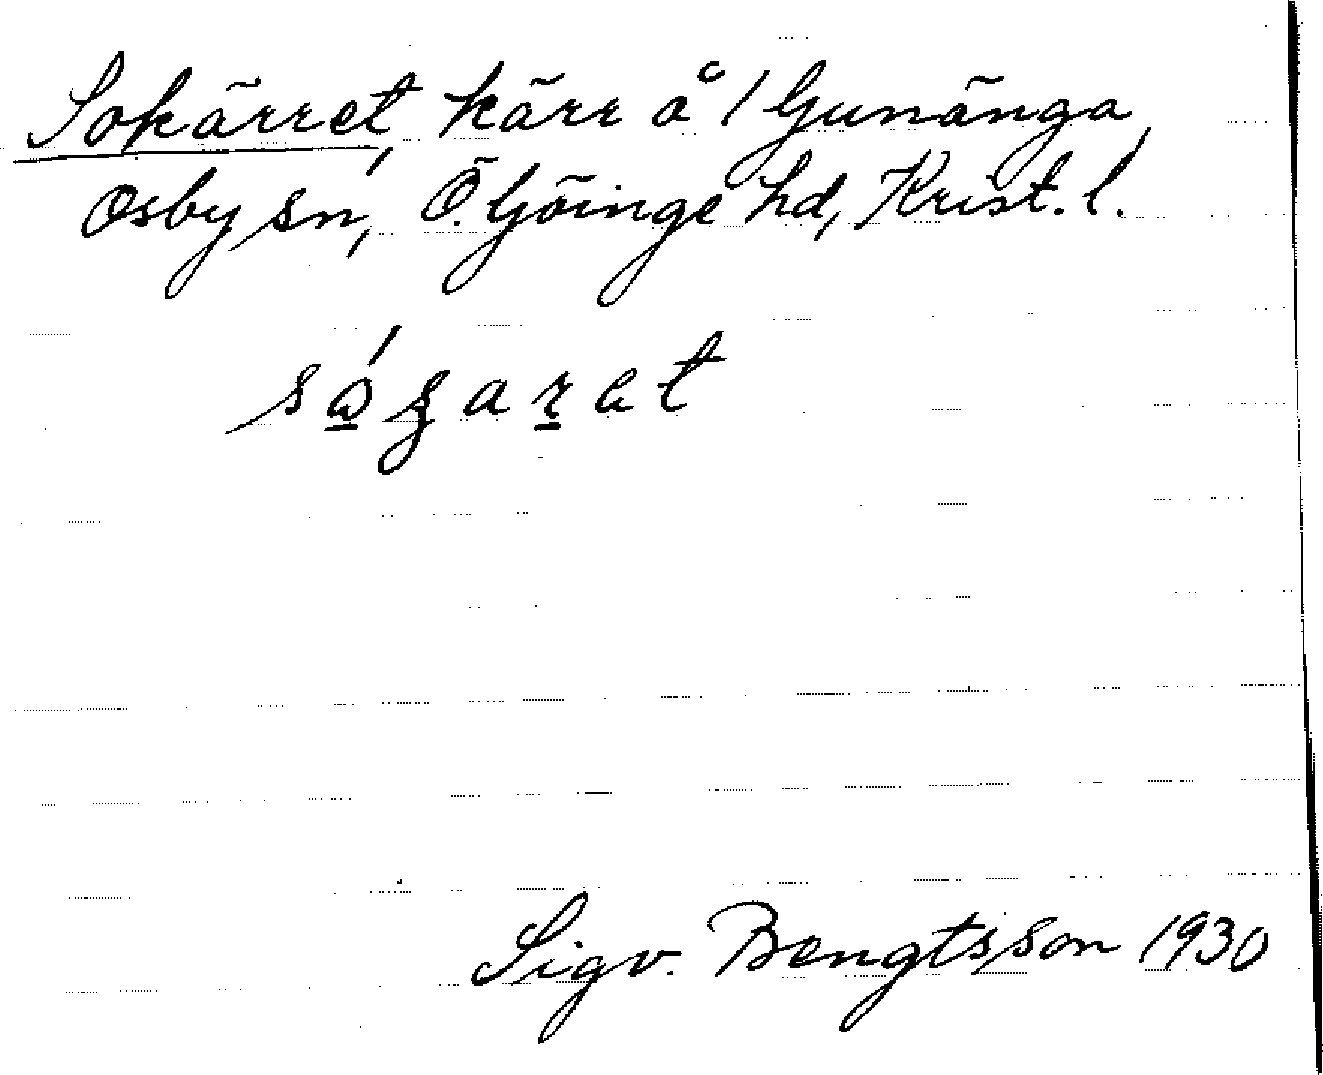 Sokärret, kärr å 1 Gunänga,
Osby sn, Ö. Göinge hd, Krist. l.
Sigv. Bengtsson 1930